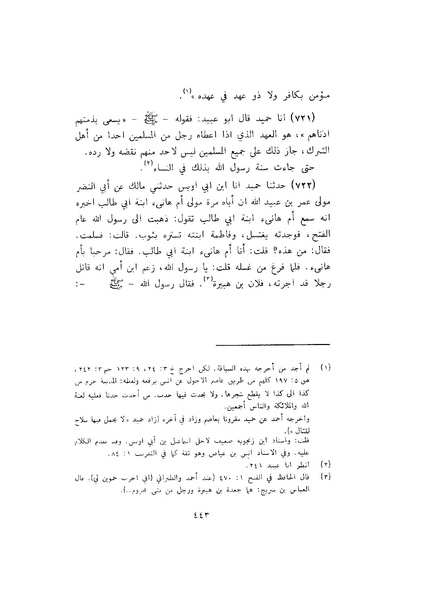 مؤمن بكافر ولا ذو عهد في عهده»(١).
(٧٢١) انا حميد قال ابو عبيد: فقوله - ﷺ - «يسعى بذمتهم
ادناهم»، هو العهد الذي اذا اعطاه رجل من المسلمين احدا من أهل
الشرك، جاز ذلك على جميع المسلمين ليس لاحد منهم نقضه ولا رده.
حتى جاءت سنة رسول الله بذلك في النساء(٢).
(٧٢٢) حدثنا حميد انا ابن ابي اويس حدثني مالك عن أبي النضر
مولى عمر بن عبيد الله ان أباه مرة مولى أم هانىء ابنة ابي طالب اخبره
انه سمع أم هانىء ابنة ابي طالب تقول: ذهبت الى رسول الله عام
الفتح، فوجدته يغتسل، وفاطمة ابنته تستره بثوب. قالت: فسلمت.
فقال: من هذه؟ قلت: أنا أم هانىء ابنة ابي طالب. فقال: مرحبا بأم
هانىء. فلما فرغ من غسله قلت: يا رسول الله، زعم ابن أمي انه قاتل
رجلا قد اجرته، فلان بن هبيرة(٣). فقال رسول الله - ﷺ - :
(١) لم أجد من أخرجه بهذه السياقة. لكن اخرج خ ٣: ٢٤، ٩: ١٢٣ حم ٣: ٢٤٢،
هق ٥: ١٩٧ كلهم من طريق عاصم الاحول عن انس يرفعه ولفظه: المدينة حرم من
كذا الى كذا لا يقطع شجرها، ولا يحدث فيها حدث. من أحدث حدثا فعليه لعنة
الله والملائكة والناس أجمعين.
واخرجه أحمد عن حميد مقرونا بعاصم وزاد في آخره (زاد حميد «لا يحمل فيها سلاح
لقتال»).
قلت: واسناد ابن زنجويه ضعيف لاجل اسماعيل بن أبي اويس. وقد تقدم الكلام
عليه. وفي الاسناد انس بن عياض وهو ثقة كما في التقريب ١: ٨٤.
(٢) انظر ابا عبيد ٢٤١.
(٣) قال الحافظ في الفتح ١: ٤٧٠ (عند أحمد والطبراني (اني اجرت حموين لي). قال
العباس بن سريج: هما جعدة بن هبيرة ورجل من بني مخزوم..).
٤٤٣